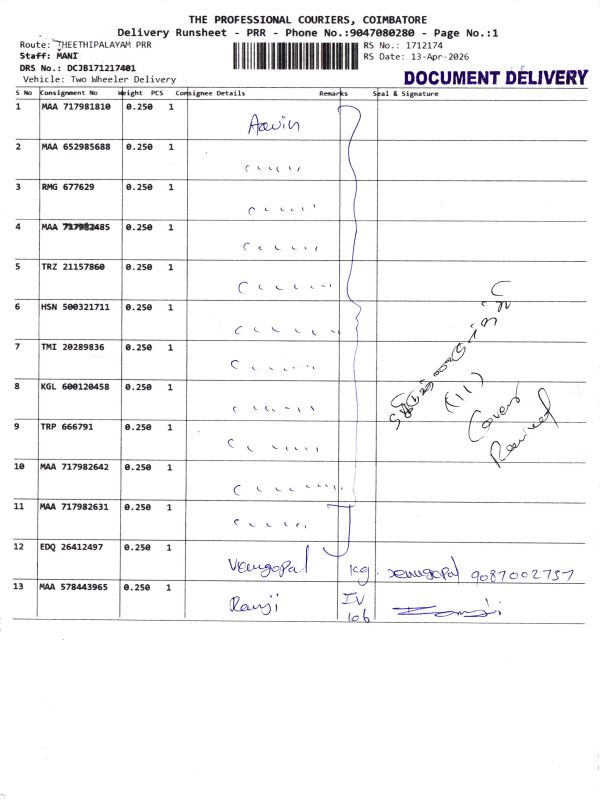 THE PROFESSIONAL COURIERS, COIMBATORE
Delivery Runsheet - PRR - Phone No.:9047080280 - Page No.:1
Route: THEETHIPALAYAM PRR
RS No.: 1712174
Staff: MANI
RS Date: 13-Apr-2026
DRS No.: DCJB171217401
Vehicle: Two Wheeler Delivery
DOCUMENT DELIVERY
S No Consignment No Weight PCS Consignee Details Remarks Seal & Signature
1 MAA 717981810 0.250 1
2 MAA 652985688 0.250 1
3 RMG 677629 0.250 1
4 MAA 717982485 0.250 1
5 TRZ 21157860 0.250 1
6 HSN 500321711 0.250 1
7 TMI 20289836 0.250 1
8 KGL 600120458 0.250 1
(11)
Cover
9 TRP 666791 0.250 1
Received
10 MAA 717982642 0.250 1
11 MAA 717982631 0.250 1
12 EDQ 26412497 0.250 1 Venugopal kg. Venugopal
13 MAA 578443965 0.250 1 Ramji IV